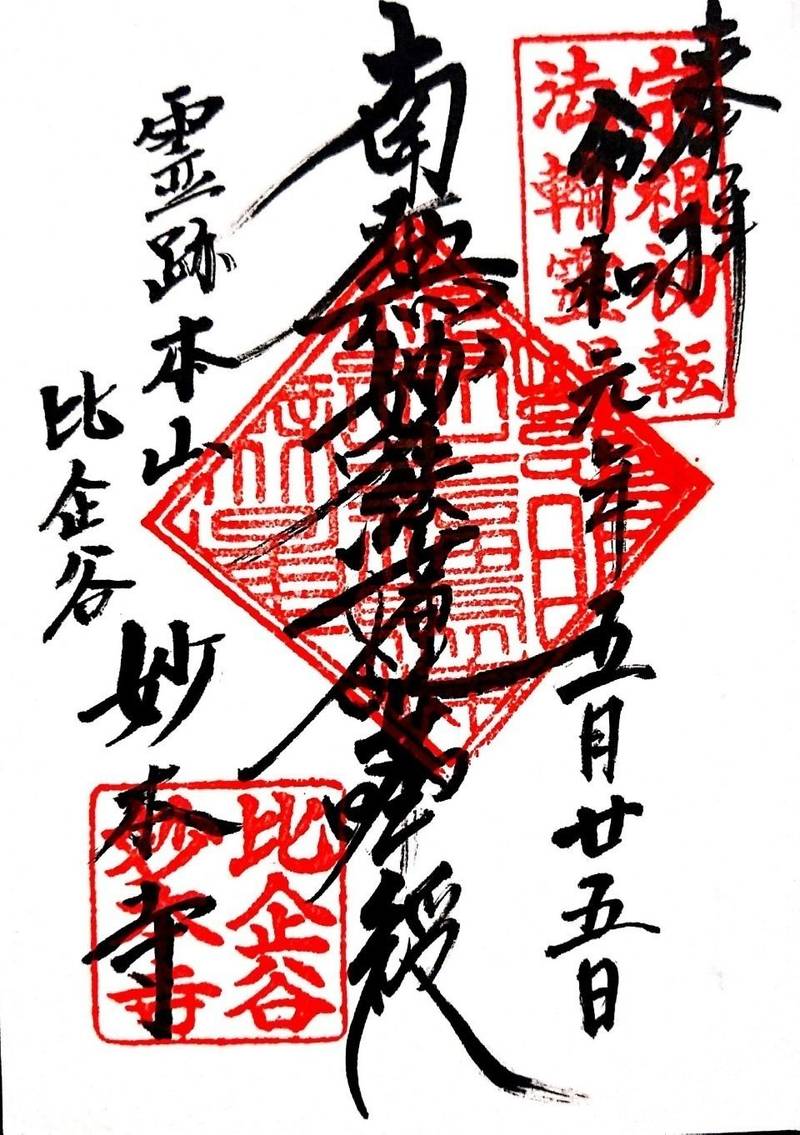 奉拝
令和元年五月廿五日
南無妙法蓮華経
霊跡本山
比企谷
妙本寺
宗祖初転
法輪霊
比企谷
妙本寺